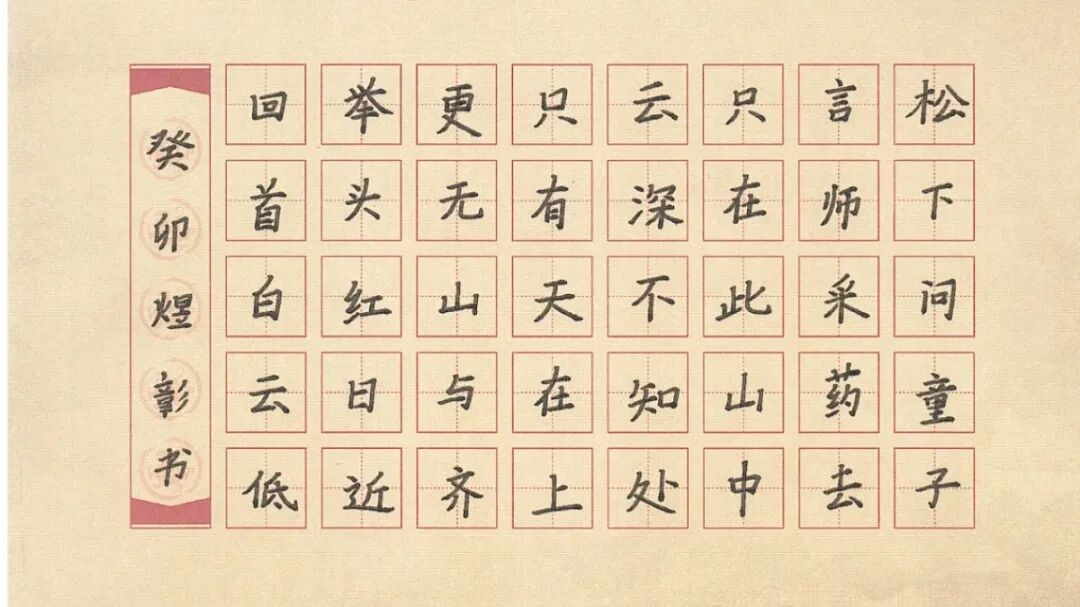 松下问童子
言师采药去
只在此山中
云深不知处
只有天在上
更无山与齐
举头红日近
回首白云低
癸卯煜彰书